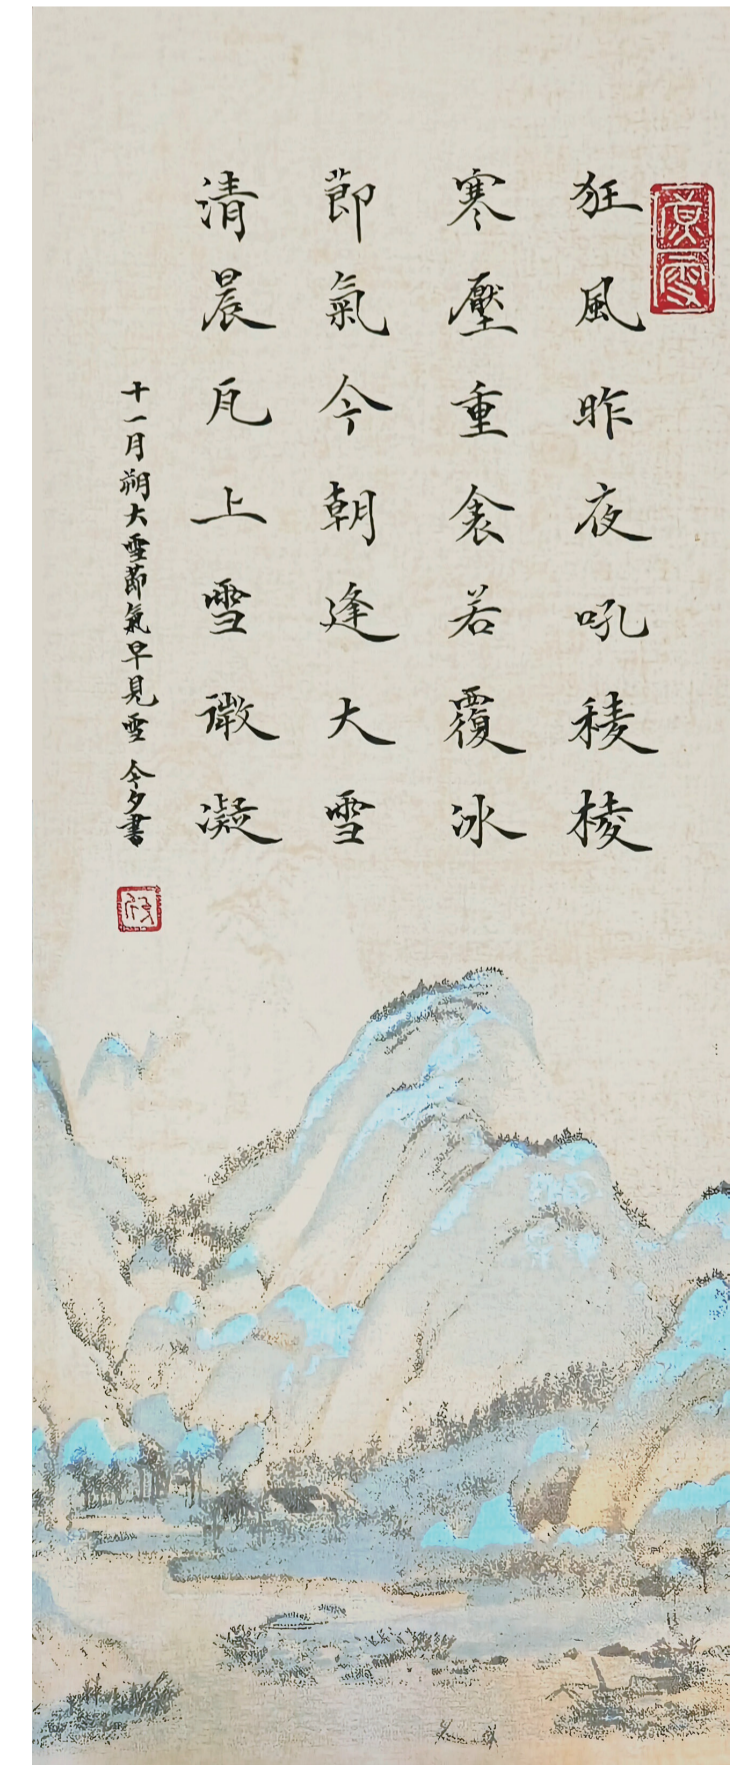 狂風昨夜吼稜棱
寒壓重衾若覆冰
節氣今朝逢大雪
清晨瓦上雪微凝
十一月朔大雪節氣早見雪 今夕書